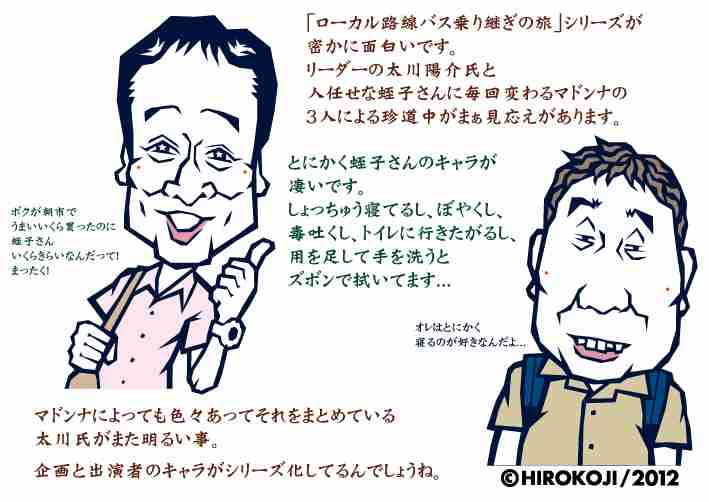 「ローカル路線バス乗り継ぎの旅」シリーズが
密かに面白いです。
リーダーの太川陽介氏と
人任せな蛭子さんに毎回変わるマドンナの
３人による珍道中がまぁ見応えがあります。
とにかく蛭子さんのキャラが
凄いです。
しょっちゅう寝てるし、ぼやくし、
毒吐くし、トイレに行きたがるし、
用を足して手を洗うと
ズボンで拭いてます…
ボクが朝市で
うまいいくら買ったのに
蛭子さん
いくらきらいなんだって!
まったく!
オレはとにかく
寝るのが好きなんだよ…
マドンナによっても色々あってそれをまとめている
太川氏がまた明るい事。
企画と出演者のキャラがシリーズ化してるんでしょうね。
©HIROKOJI/2012